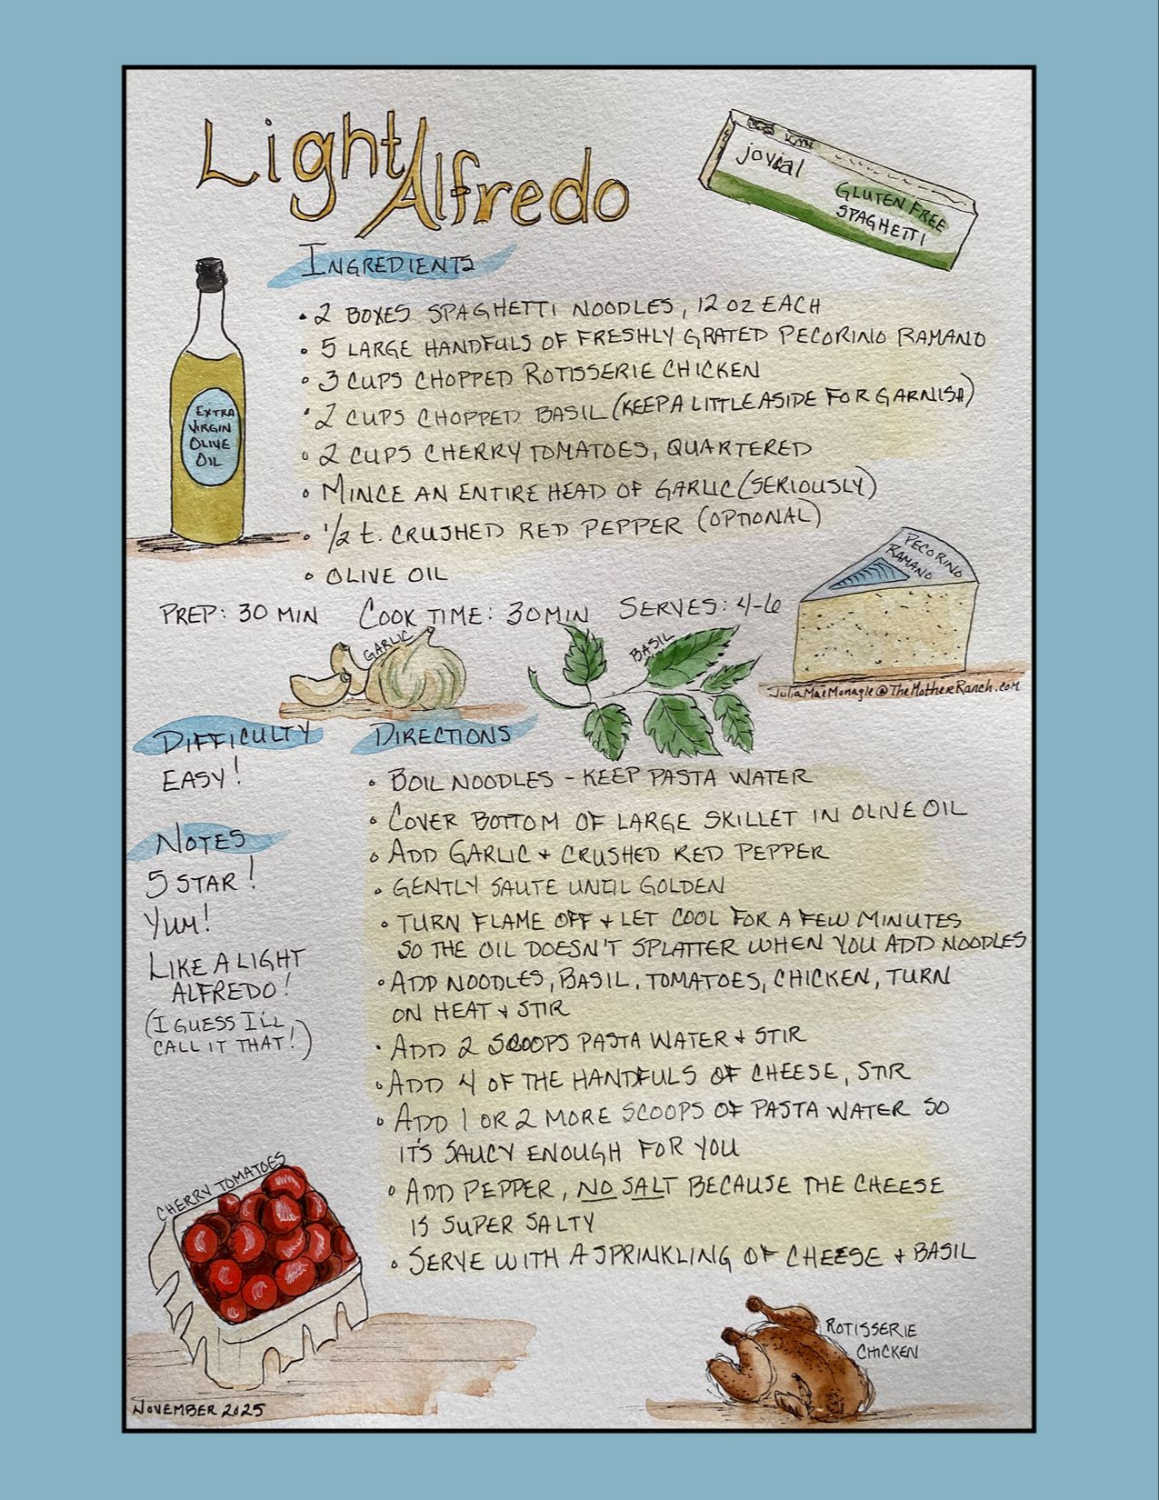 Light Alfredo
jovial
GLUTEN FREE
SPAGHETTI
INGREDIENTS
EXTRA
VIRGIN
OLIVE
OIL
• 2 BOXES SPAGHETTI NOODLES, 12 OZ EACH
• 5 LARGE HANDFULS OF FRESHLY GRATED PECORINO RAMANO
• 3 CUPS CHOPPED ROTISSERIE CHICKEN
• 2 CUPS CHOPPED BASIL (KEEP A LITTLE ASIDE FOR GARNISH)
• 2 CUPS CHERRY TOMATOES, QUARTERED
• MINCE AN ENTIRE HEAD OF GARLIC (SERIOUSLY)
• 1/2 t. CRUSHED RED PEPPER (OPTIONAL)
• OLIVE OIL
PECORINO
RAMANO
PREP: 30 MIN COOK TIME: 30 MIN SERVES: 4-6
GARLIC
BASIL
JuliaMaeMonagle@TheMotherRanch.com
DIFFICULTY
EASY!
NOTES
5 STAR!
YUM!
LIKE A LIGHT
ALFREDO!
(I GUESS I'LL
CALL IT THAT!)
DIRECTIONS
• BOIL NOODLES - KEEP PASTA WATER
• COVER BOTTOM OF LARGE SKILLET IN OLIVE OIL
• ADD GARLIC + CRUSHED RED PEPPER
• GENTLY SAUTE UNTIL GOLDEN
• TURN FLAME OFF + LET COOL FOR A FEW MINUTES
SO THE OIL DOESN'T SPLATTER WHEN YOU ADD NOODLES
• ADD NOODLES, BASIL, TOMATOES, CHICKEN, TURN
ON HEAT + STIR
• ADD 2 SCOOPS PASTA WATER + STIR
• ADD 4 OF THE HANDFULS OF CHEESE, STIR
• ADD 1 OR 2 MORE SCOOPS OF PASTA WATER SO
IT'S SAUCY ENOUGH FOR YOU
• ADD PEPPER, NO SALT BECAUSE THE CHEESE
IS SUPER SALTY
• SERVE WITH A SPRINKLING OF CHEESE + BASIL
CHERRY TOMATOES
ROTISSERIE
CHICKEN
NOVEMBER 2025